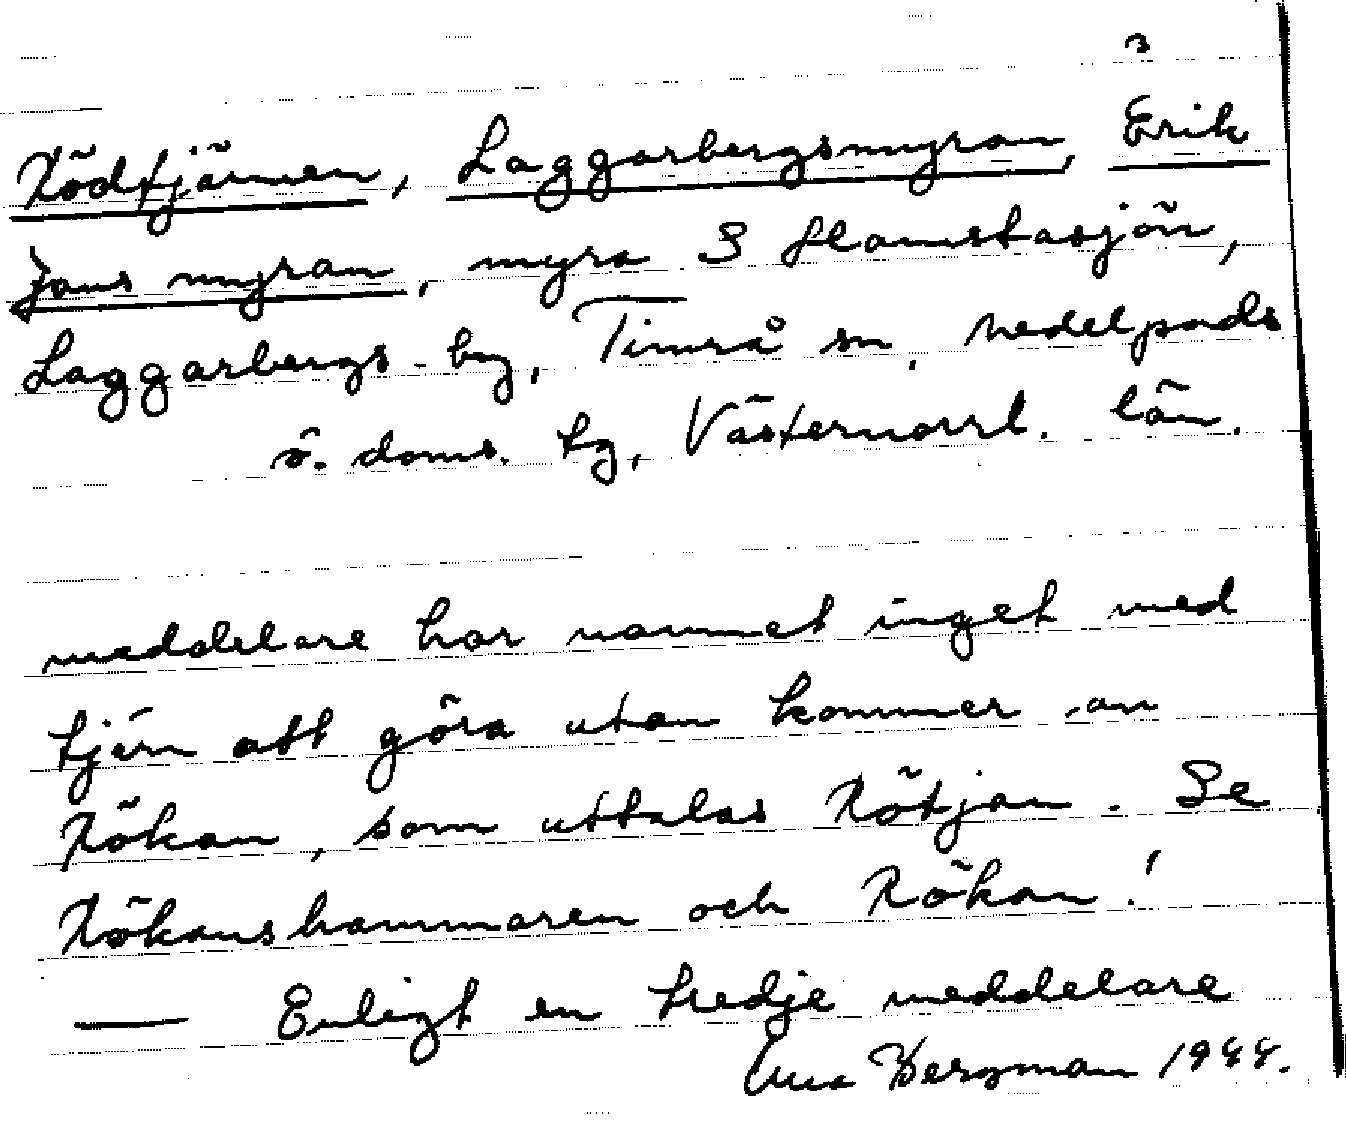 3
Rödtjärnen, Laggarbergsmyran, Erik
Jans myran, myra S Slamstasjön,
Laggarbergs by, Timrå sn, Medelpads
ö. doms. tg, Västernorrl. län.
meddelare har namnet inget med
tjärn att göra utan kommer an
Rökan, som uttalas Rötjan. Se
Rökanshammaren och Rökan!
— Enligt en tredje meddelare
Bergman 1944.